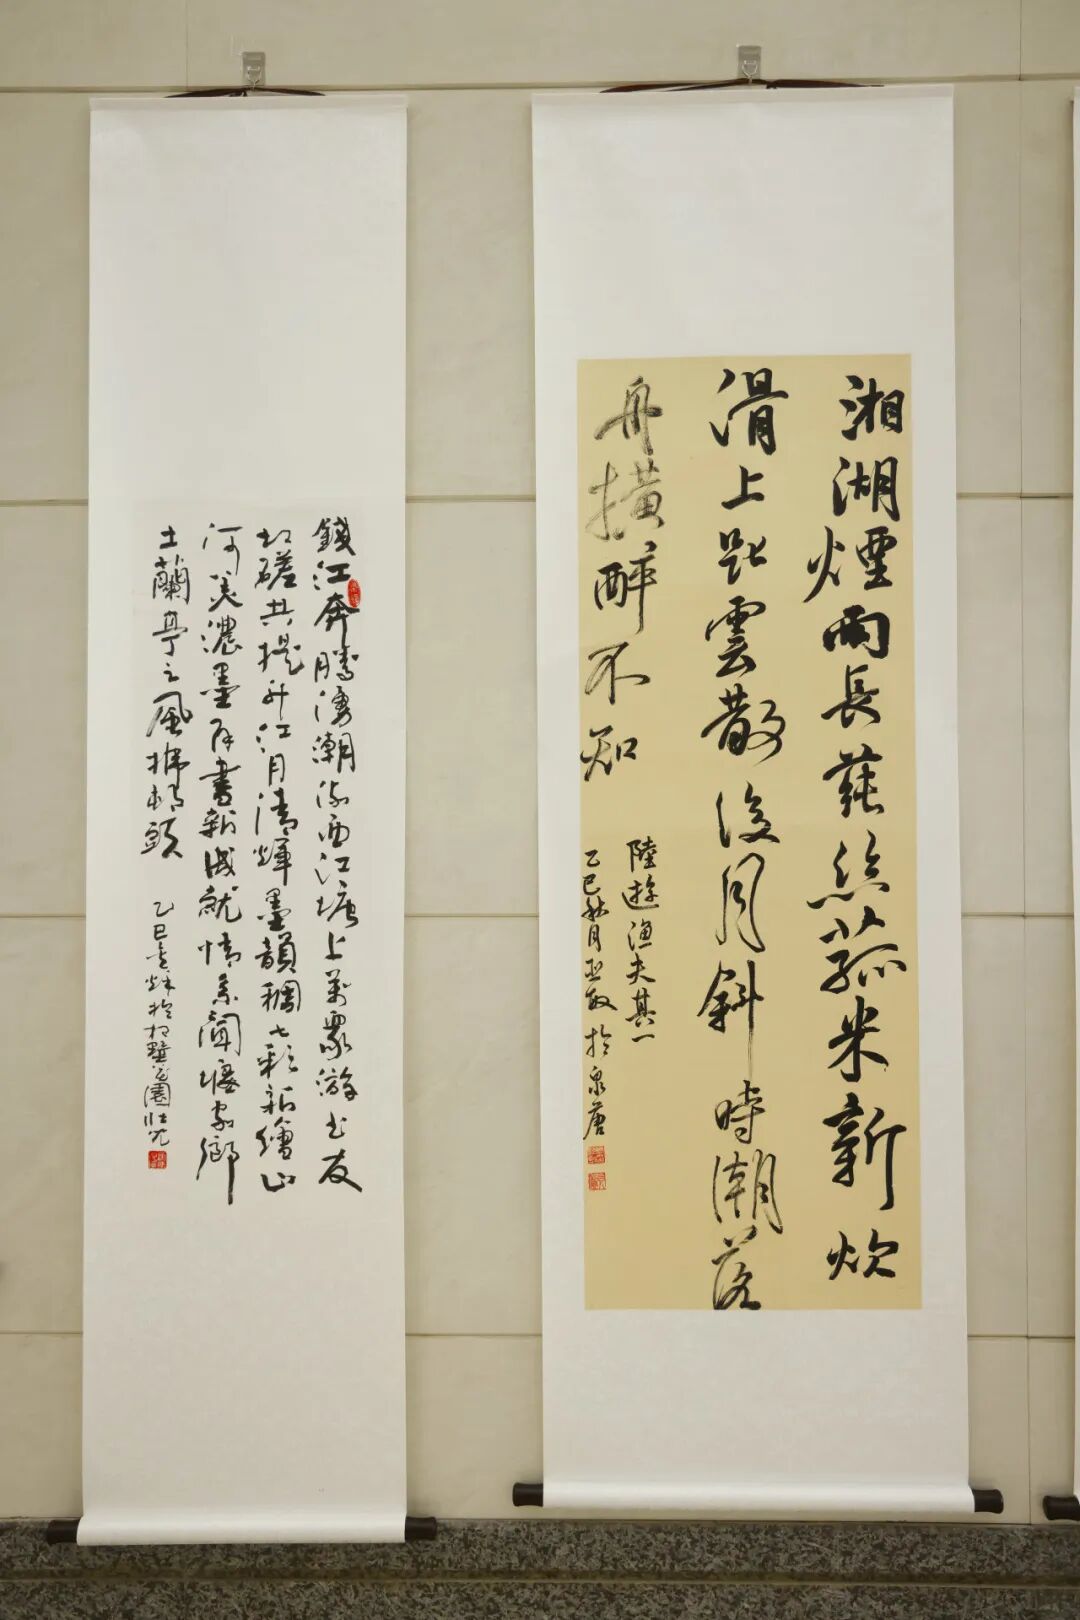 湘湖煙雨長蓴絲菰米新炊
滑上匙雲散後月斜時潮落
舟橫醉不知
陸遊漁夫其一
乙巳秋月亞敏於泉唐
錢江奔騰湧潮流西江塘上萬眾游書友
切磋共提升江月清輝墨韻稠七彩新繪山
河美濃墨書新成就情系聞堰家鄉
土蘭亭之風拂枝頭
乙巳金秋於墅園